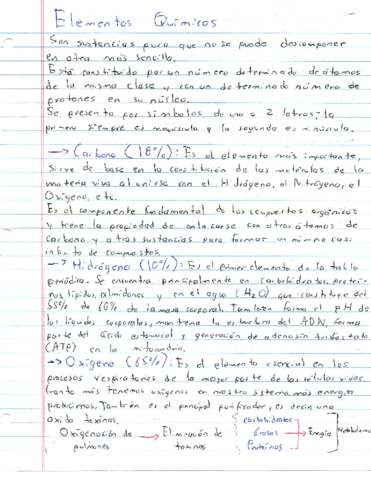 Elementos Químicos
Son sustancias pura que no se puede descomponer
en otra más sencilla.
Está constituido por un número determinado de átomos
de la misma clase y con un determinado número de
protones en su núcleo.
Se presenta por símbolos de una o 2 letras; la
primera siempre es mayuscula y la segunda es minúscula.
→ Carbono (18%): Es el elemento más importante,
sirve de base en la constitución de las moléculas de la
materia viva al unirse con el Hidrógeno, el Nitrógenos, el
Oxígeno, etc.
Es el componente fundamental de los compuestos orgánicos
y tiene la propiedad de enlazarse con otros átomos de
carbono y otras sustancias para formar un número casi
infinito de compuestos.
→ Hidrógeno (10%): Es el primer elemento de la tabla
periódica. Se encuentra principalmente en carbohidratos, protei-
nas, lípidos, almidones y en el agua (H2O) que constituye del
55% de 60% de la masa corporal. También forma el pH de
los líquidos corporales, mantiene la estructura del ADN, forma
parte del ácido estomacal y generación de adenosín trifosfato
(ATP) en la mitocondria.
→ Oxígeno (65%): Es el elemento esencial en los
procesos respiratorios de la mayor parte de las células vivas.
Cuanto más tenemos oxígenos en nuestro sistema, más energía
producimos. También es el principal purificador, es decir, una
oxida toxinas.
Oxigenación de pulmones → Eliminación de toxinas
Carbohidratos
Grasas → Energía
Proteínas
Metabolismo